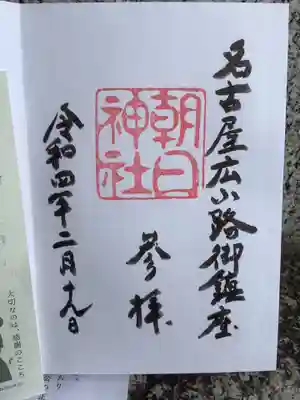 名古屋広小路御鎮座
朝日
神社
参拝
令和四年二月十九日
大切なのは、感謝のこころ